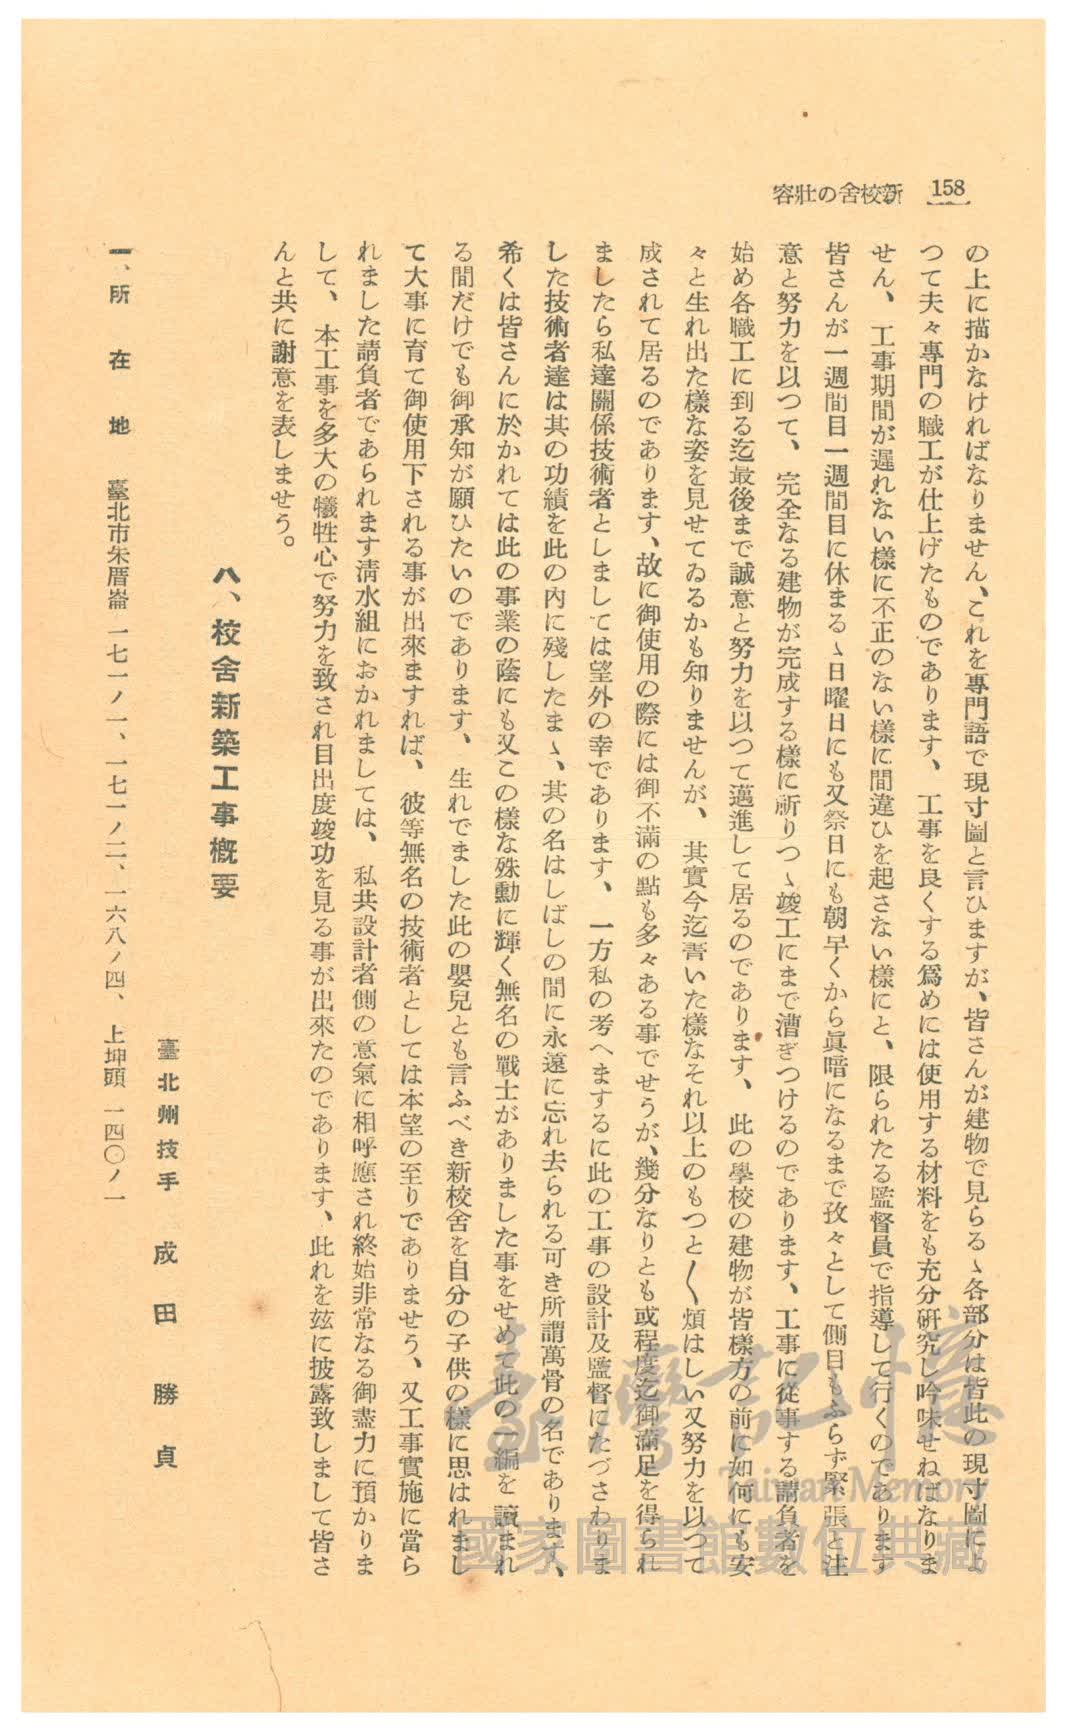 158
新校舍の壯容
の上に描かなければなりません、これを專門語で現寸圖と言ひますが、皆さんが建物で見らるゝ各部分は皆此の現寸圖によ
つて夫々專門の職工が仕上げたものであります、工事を良くする爲めには使用する材料をも充分研究し吟味せねばなりま
せん、工事期間が遲れない樣に不正のない樣に間違ひを起さない樣にと、限られたる監督員で指導して行くのであります
皆さんが一週間目一週間目に休まるゝ日曜日にも又祭日にも朝早くから眞暗になるまで孜々として側目もふらず緊張と注
意と努力を以つて、完全なる建物が完成する樣に祈りつゝ竣工にまで漕ぎつけるのであります、工事に從事する請負者を
始め各職工に到る迄最後まで誠意と努力を以つて邁進して居るのであります、此の學校の建物が皆樣方の前に如何にも安
々と生れ出た樣な姿を見せてゐるかも知りませんが、其實今迄書いた樣なそれ以上のもつと〱煩はしい又努力を以つて
成されて居るのであります、故に御使用の際には御不滿の點も多々ある事でせうが、幾分なりとも或程度迄御滿足を得られ
ましたら私達關係技術者としましては望外の幸であります、一方私の考へまするに此の工事の設計及監督にたづさわりま
した技術者達は其の功績を此の內に殘したまゝ、其の名はしばしの間に永遠に忘れ去られる可き所謂萬骨の名であります、
希くは皆さんに於かれては此の事業の蔭にも又この樣な殊勳に輝く無名の戰士がありました事をせめて此の一編を讀まれ
る間だけでも御承知が願ひたいのであります、生れでました此の嬰兒とも言ふべき新校舍を自分の子供の樣に思はれまし
て大事に育て御使用下される事が出來ますれば、彼等無名の技術者としては本望の至りでありませう、又工事實施に當ら
れました請負者であられます淸水組におかれましては、私共設計者側の意氣に相呼應され終始非常なる御盡力に預かりま
して、本工事を多大の犧牲心で努力を致され目出度竣功を見る事が出來たのであります、此れを玆に披露致しまして皆さ
んと共に謝意を表しませう。
八、校舍新築工事槪要
臺北州技手 成田勝貞
一、所在地 臺北市朱厝崙 一七一ノ一、一七一ノ二、一六八ノ四、上埤頭 一四〇ノ一
臺灣記憶
Taiwan Memory
國家圖書館數位典藏